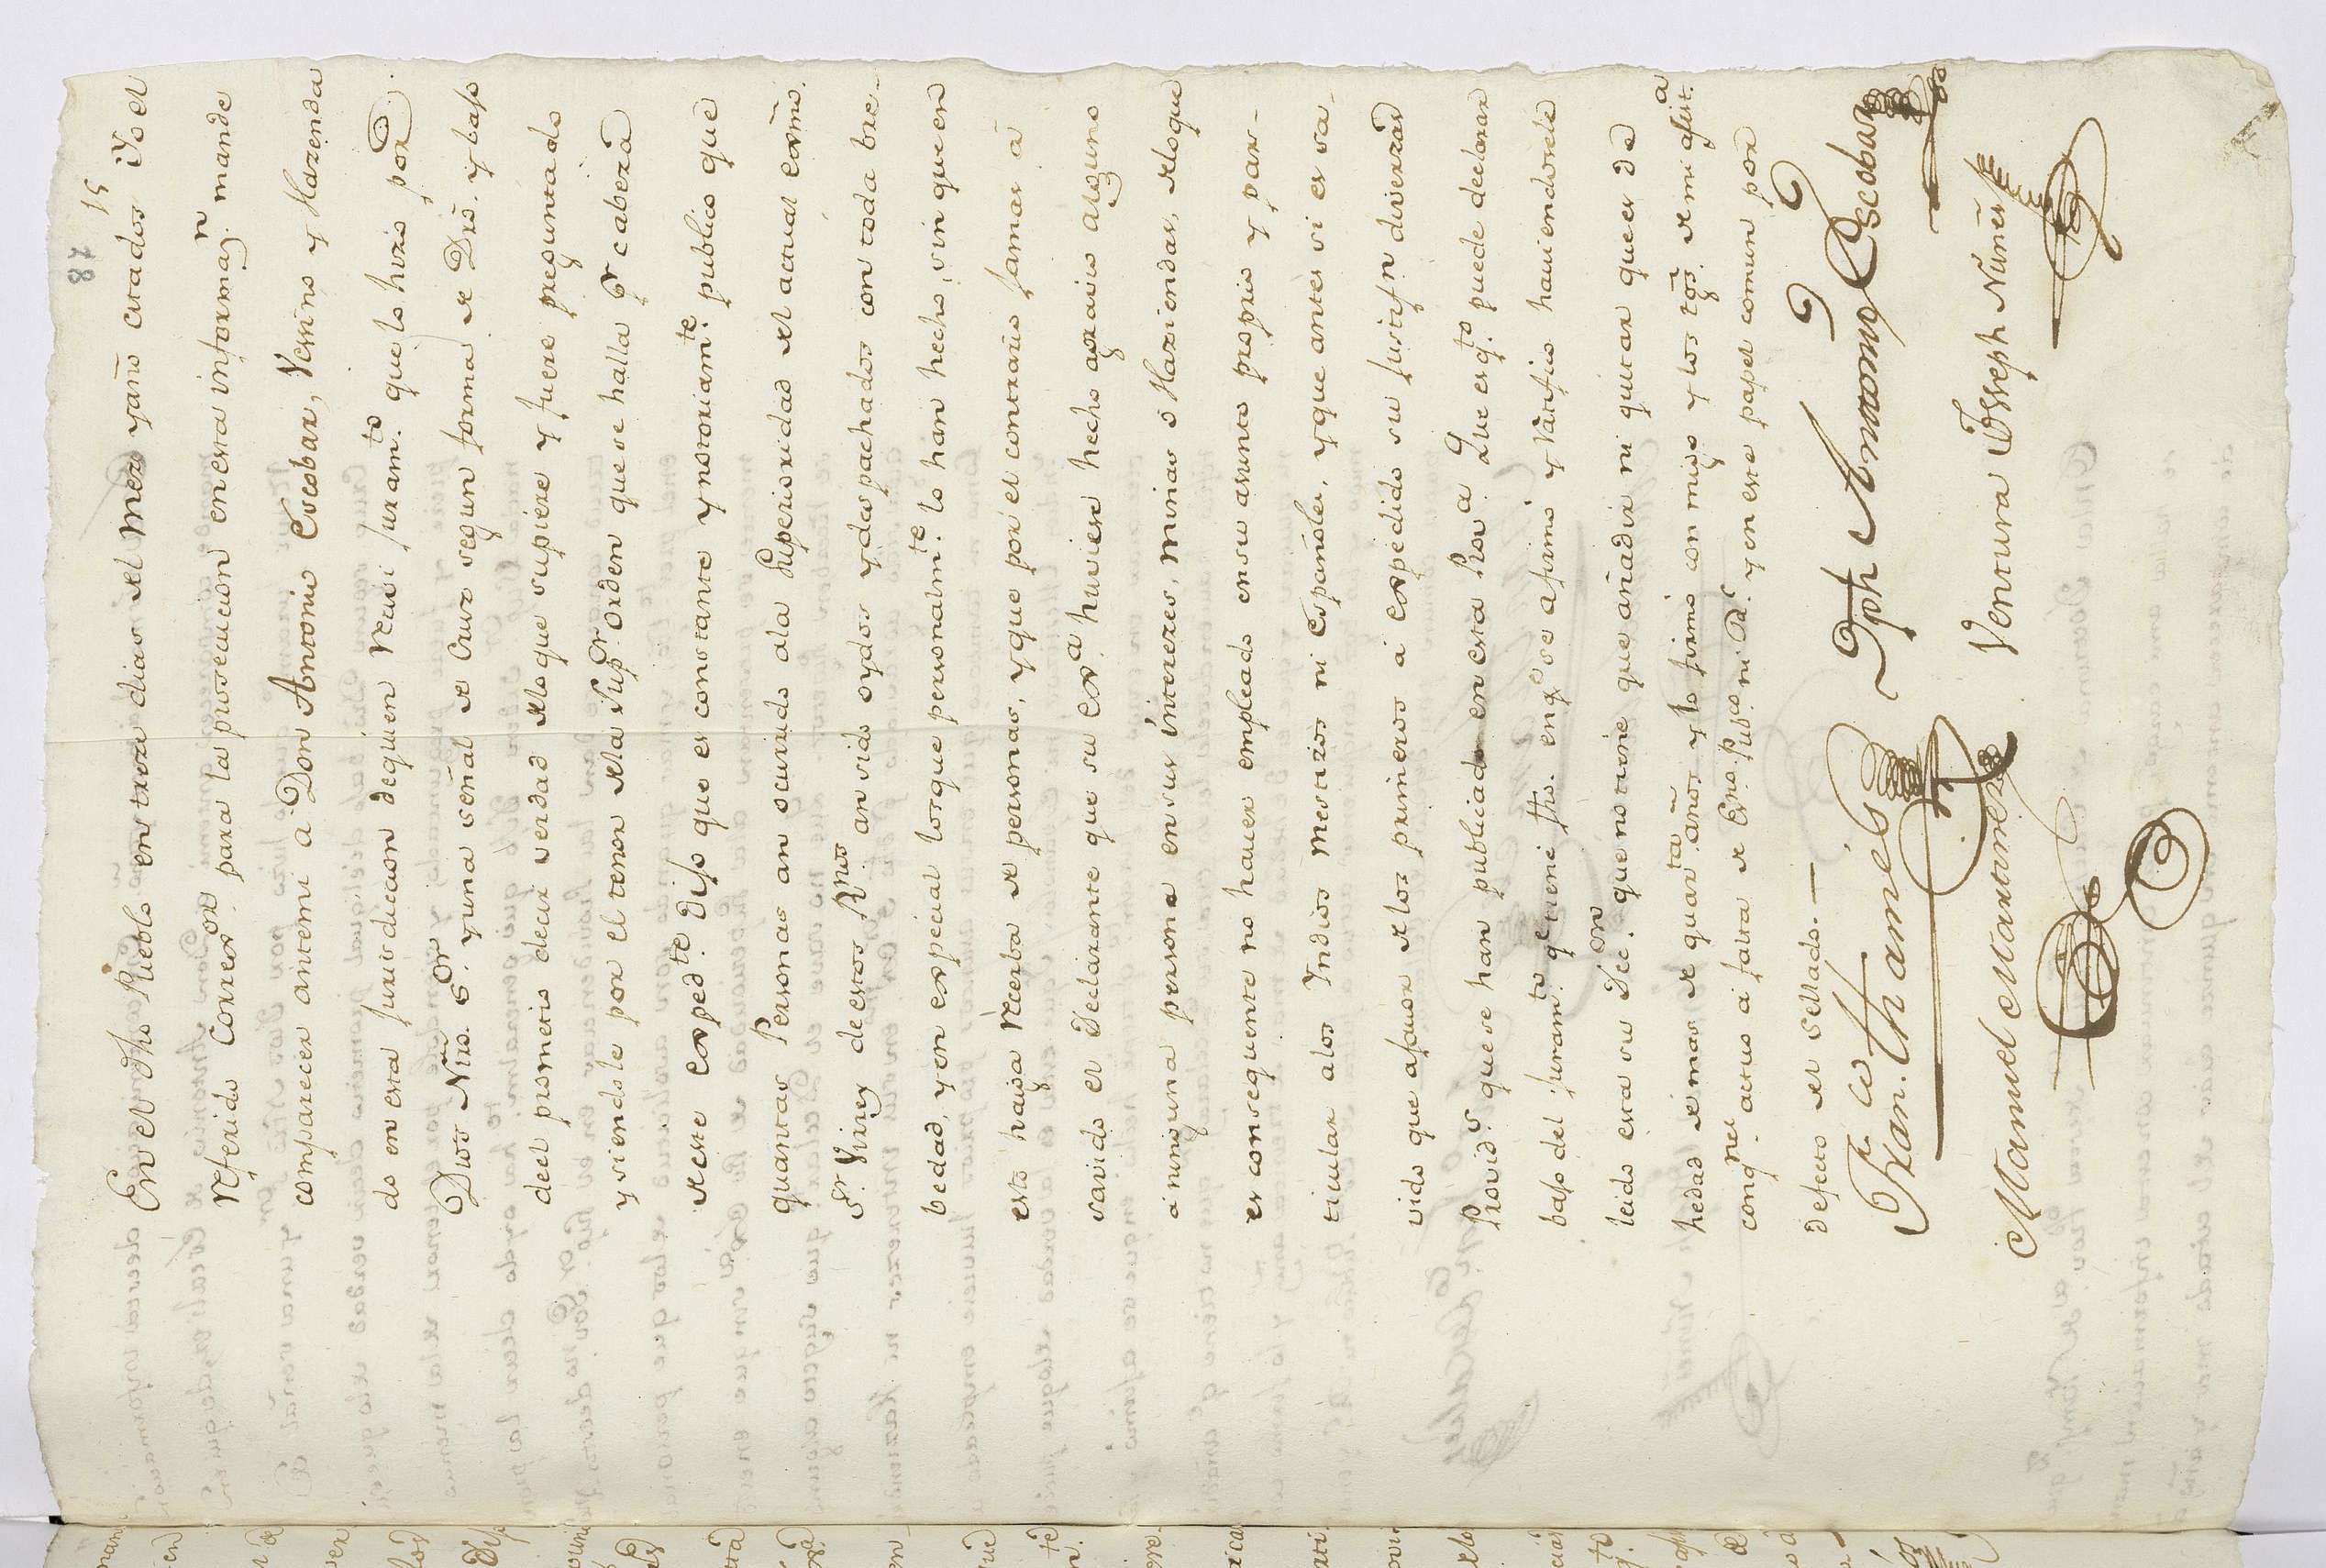 15
18
En el dho Pueblo en treze dias del mes y año citados Yo el
referido Correg.or para la prosecucion en esta informaz.n mande
comparecer antemi à Don Antonio Escobar, Vezino y Hazenda
do en esta jurisdiccion de quien recivi juram.to que lo hizo por
Dios Ntro. S.or y una señal de Cruz segun forma de Dro. y bajo
deel prometio decir verdad delo que supiere y fuere preguntado
y siendole por el tenor dela Sup.or orden que se halla p.r cabeza
de este exped.te Dijo que es constante y notoriam.te publico que
quantas Personas an ocurrido ala Superioridad del actual exmô.
S.r Virrey de estos R.nos an sido oydos y despachados con toda bre-
bedad, y en especial los que personalm.te lo han hecho, sin que en
esto haiga recerba de personas, y que por el contrario jamas à
savido el Declarante que su Ex.a huviese hecho agravio alguno
a ninguna persona en sus interezes, minas ô Haziendas, delo que
es consequente no haver empleado en su asunto proprio y par-
ticular alos Yndios Mestizos ni Españoles, y que antes si es sa-
vido que afavor de los primeros à expedido su Justifn diverzas
Provid.s que se han publicado en esta Prov.a Que es q.to puede declarar
bajo del juram.to q.e tiene fho. en q.e se afirmó y ratifico haviendosele
leido esta su Dec.on que no tiene que añadir ni quitar que es de
hedad de mas de quar.ta años y lo firmó con migo y los tgôs. de mi asist.a
con q.nes actuo à falta de Esno. Pub.co ni R.l y en este papel comun por
defecto del sellado.—
Fran.co Thamés Jph Antonio Escobar
Manuel Martinez Ventura Joseph Nuñes